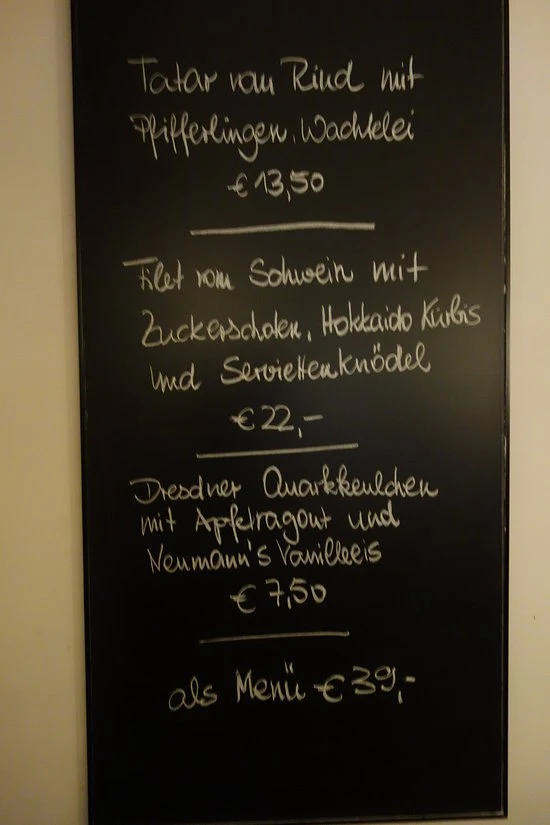 Tatar vom Rind mit
Pfifferlingen, Wachtelei
€ 13,50
Filet vom Schwein mit
Zuckerschoten, Hokkaido Kürbis
und Serviettenknödel
€ 22,-
Dresdner Quarkkeulchen
mit Apfelragout und
Neumann's Vanilleeis
€ 7,50
als Menü € 39,-